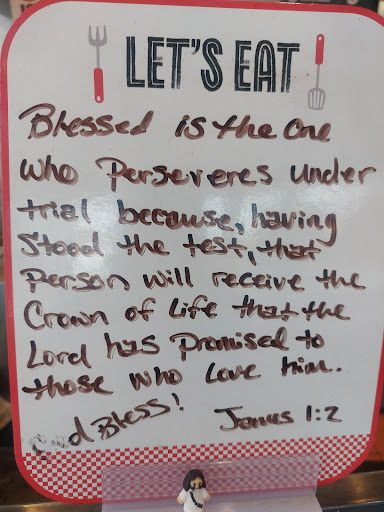 LET'S EAT
Blessed is the one
who Perseveres under
trial because, having
Stood the test, that
Person will receive the
Crown of Life that the
Lord has Promised to
those who Love him.
God Bless! James 1:2